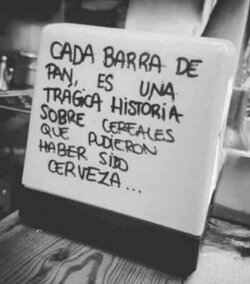 CADA BARRA DE
PAN, ES UNA
TRÁGICA HISTORIA
SOBRE CEREALES
QUE PUDIERON
HABER SIDO
CERVEZA...